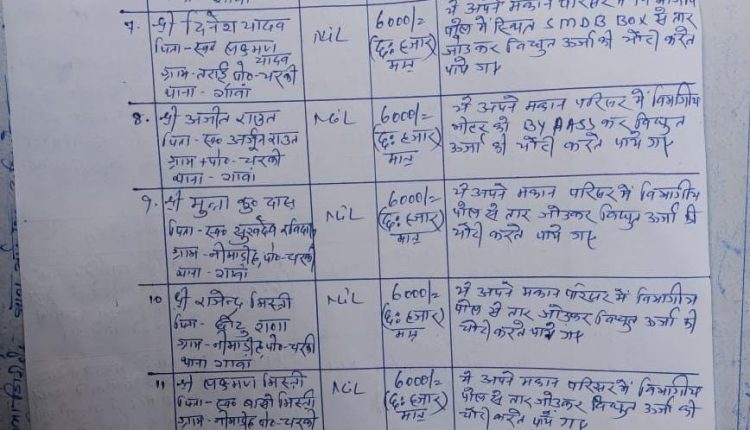 7. श्री दिनेश यादव
पिता - स्व० लक्ष्मण
यादव
ग्राम - तराई पो०- चरकी
थाना - गावां
NiL
6000/=
(छ: हजार)
मात्र
ये अपने मकान परिसर में विभागीय
पोल में स्थित SMDB BOX से तार
जोड़कर विद्युत ऊर्जा की चोरी करते
पाये गए
8. श्री अजीत राउत
पिता - स्व० अर्जुन राउत
ग्राम + पो०- चरकी
थाना - गावां
NiL
6000/=
(छ: हजार)
मात्र
ये अपने मकान परिसर में विभागीय
मीटर को BY PASS कर विद्युत
ऊर्जा की चोरी करते पाये गए
9. श्री मुन्ना कु० दास
पिता - स्व० सुखदेव रविदास
ग्राम - नीमाडीह, पो०- चरकी
थाना - गावां
NiL
6000/=
(छ: हजार)
मात्र
ये अपने मकान परिसर में विभागीय
पोल से तार जोड़कर विद्युत ऊर्जा की
चोरी करते पाये गए
10 श्री राजेन्द्र मिस्त्री
पिता - छोटु राणा
ग्राम - नीमाडीह, पो०- चरकी
थाना गावां
NiL
6000/=
(छ: हजार)
मात्र
ये अपने मकान परिसर में विभागीय
पोल से तार जोड़कर विद्युत ऊर्जा की
चोरी करते पाये गए
11 श्री लक्ष्मण मिस्त्री
पिता - स्व० बाखो मिस्त्री
ग्राम - नीमाडीह पो०- चरकी
NiL
6000/=
(छ: हजार)
मात्र
ये अपने मकान परिसर में विभागीय
पोल से तार जोड़कर विद्युत ऊर्जा की
चोरी करते पाये गए